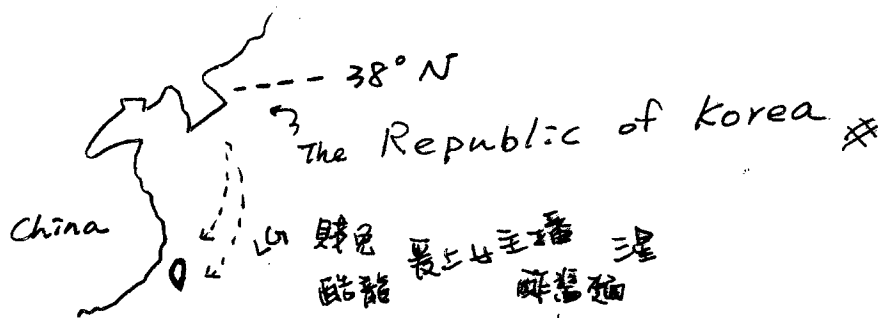 38° N
The Republic of Korea #
China
賤兔 愛上女主播 三星
酷龍 酢醬麵